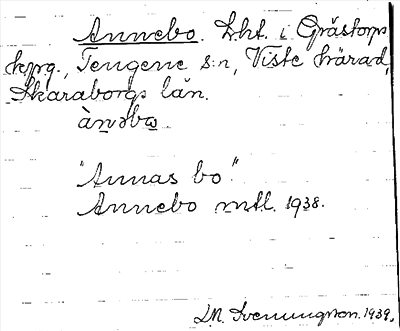 Annebo. Lht. i Grästorps
kprg., Tengene s:n, Viste härad,
Skaraborgs län.
àn̠əbω̠
"Annas bo".
Annebo mtl. 1938.
D.N. Svenungsson. 1939.